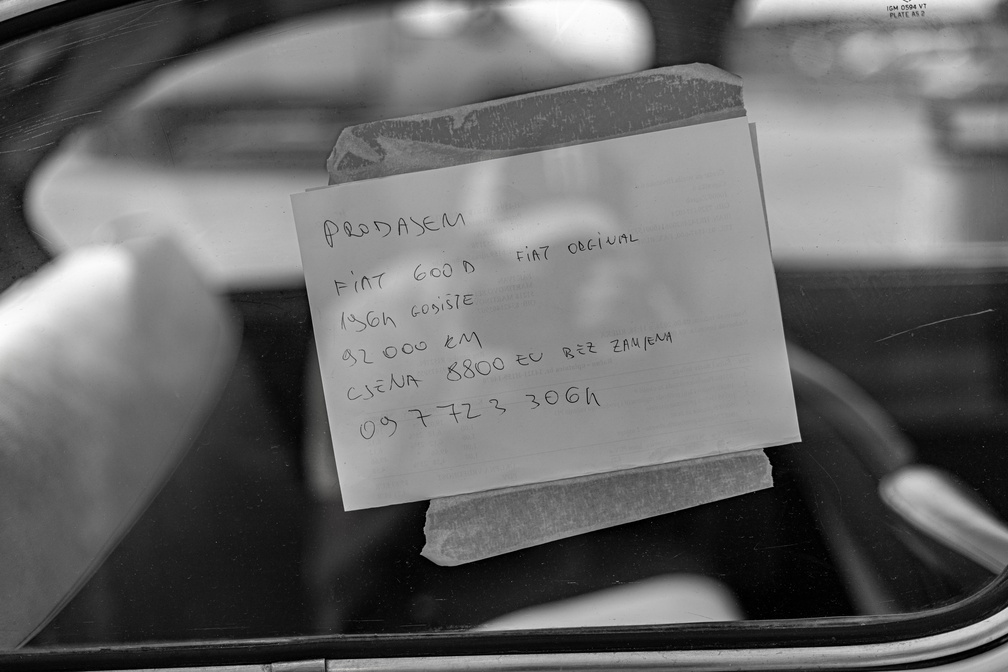 IGM 0594 VT
PLATE AS 2
PRODAJEM
FiAT 600 D FiAT ORGiNAL
1964 GODiŠTE
92 000 KM
CJENA 8800 EU BEZ ZAMJENA
09 7 723 3064